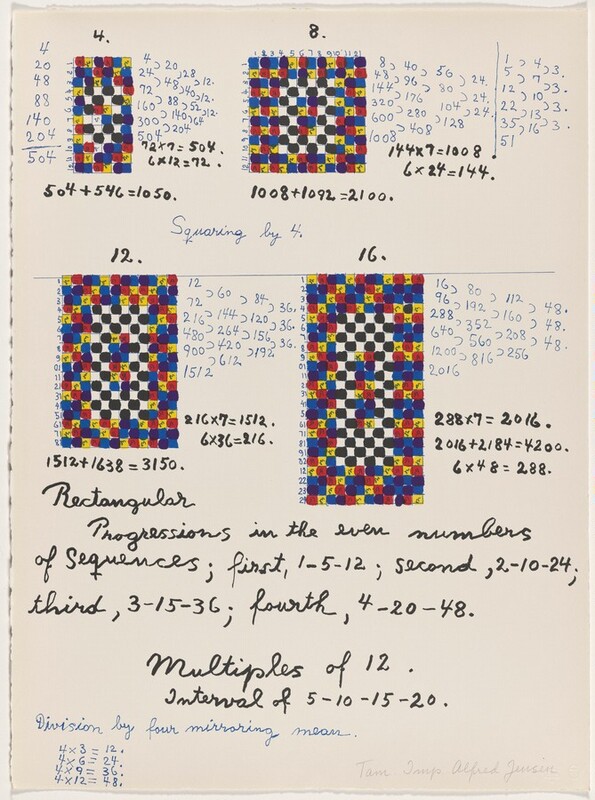 4.
4
20
48
88
140
204
504
4
24
72
160
300
504
20
48
88
140
204
28
40
52
64
12.
12.
12.
72x7=504.
6x12=72.
504+546=1050.
8.
1 2 3 4 5 6 7 8 9 10 11 12
8
48
144
320
600
1008
40
96
176
280
408
56
80
104
128
24.
24.
24.
144x7=1008.
6x24=144.
1008+1092=2100.
1
5
12
22
35
51
4
7
10
13
16
3.
3.
3.
3.
Squaring by 4.
12.
12
72
216
480
900
1512
60
144
264
420
612
84
120
156
192
36.
36.
36.
216x7=1512.
6x36=216.
1512+1638=3150.
16.
16
96
288
640
1200
2016
80
192
352
560
816
112
160
208
256
48.
48.
48.
288x7=2016.
2016+2184=4200.
6x48=288.
Rectangular
Progressions in the even numbers
of Sequences; first, 1-5-12; second, 2-10-24;
third, 3-15-36; fourth, 4-20-48.
Multiples of 12.
Interval of 5-10-15-20.
Division by four mirroring mean.
4x3=12.
4x6=24.
4x9=36.
4x12=48.
Tam. Imp. Alfred Jensen